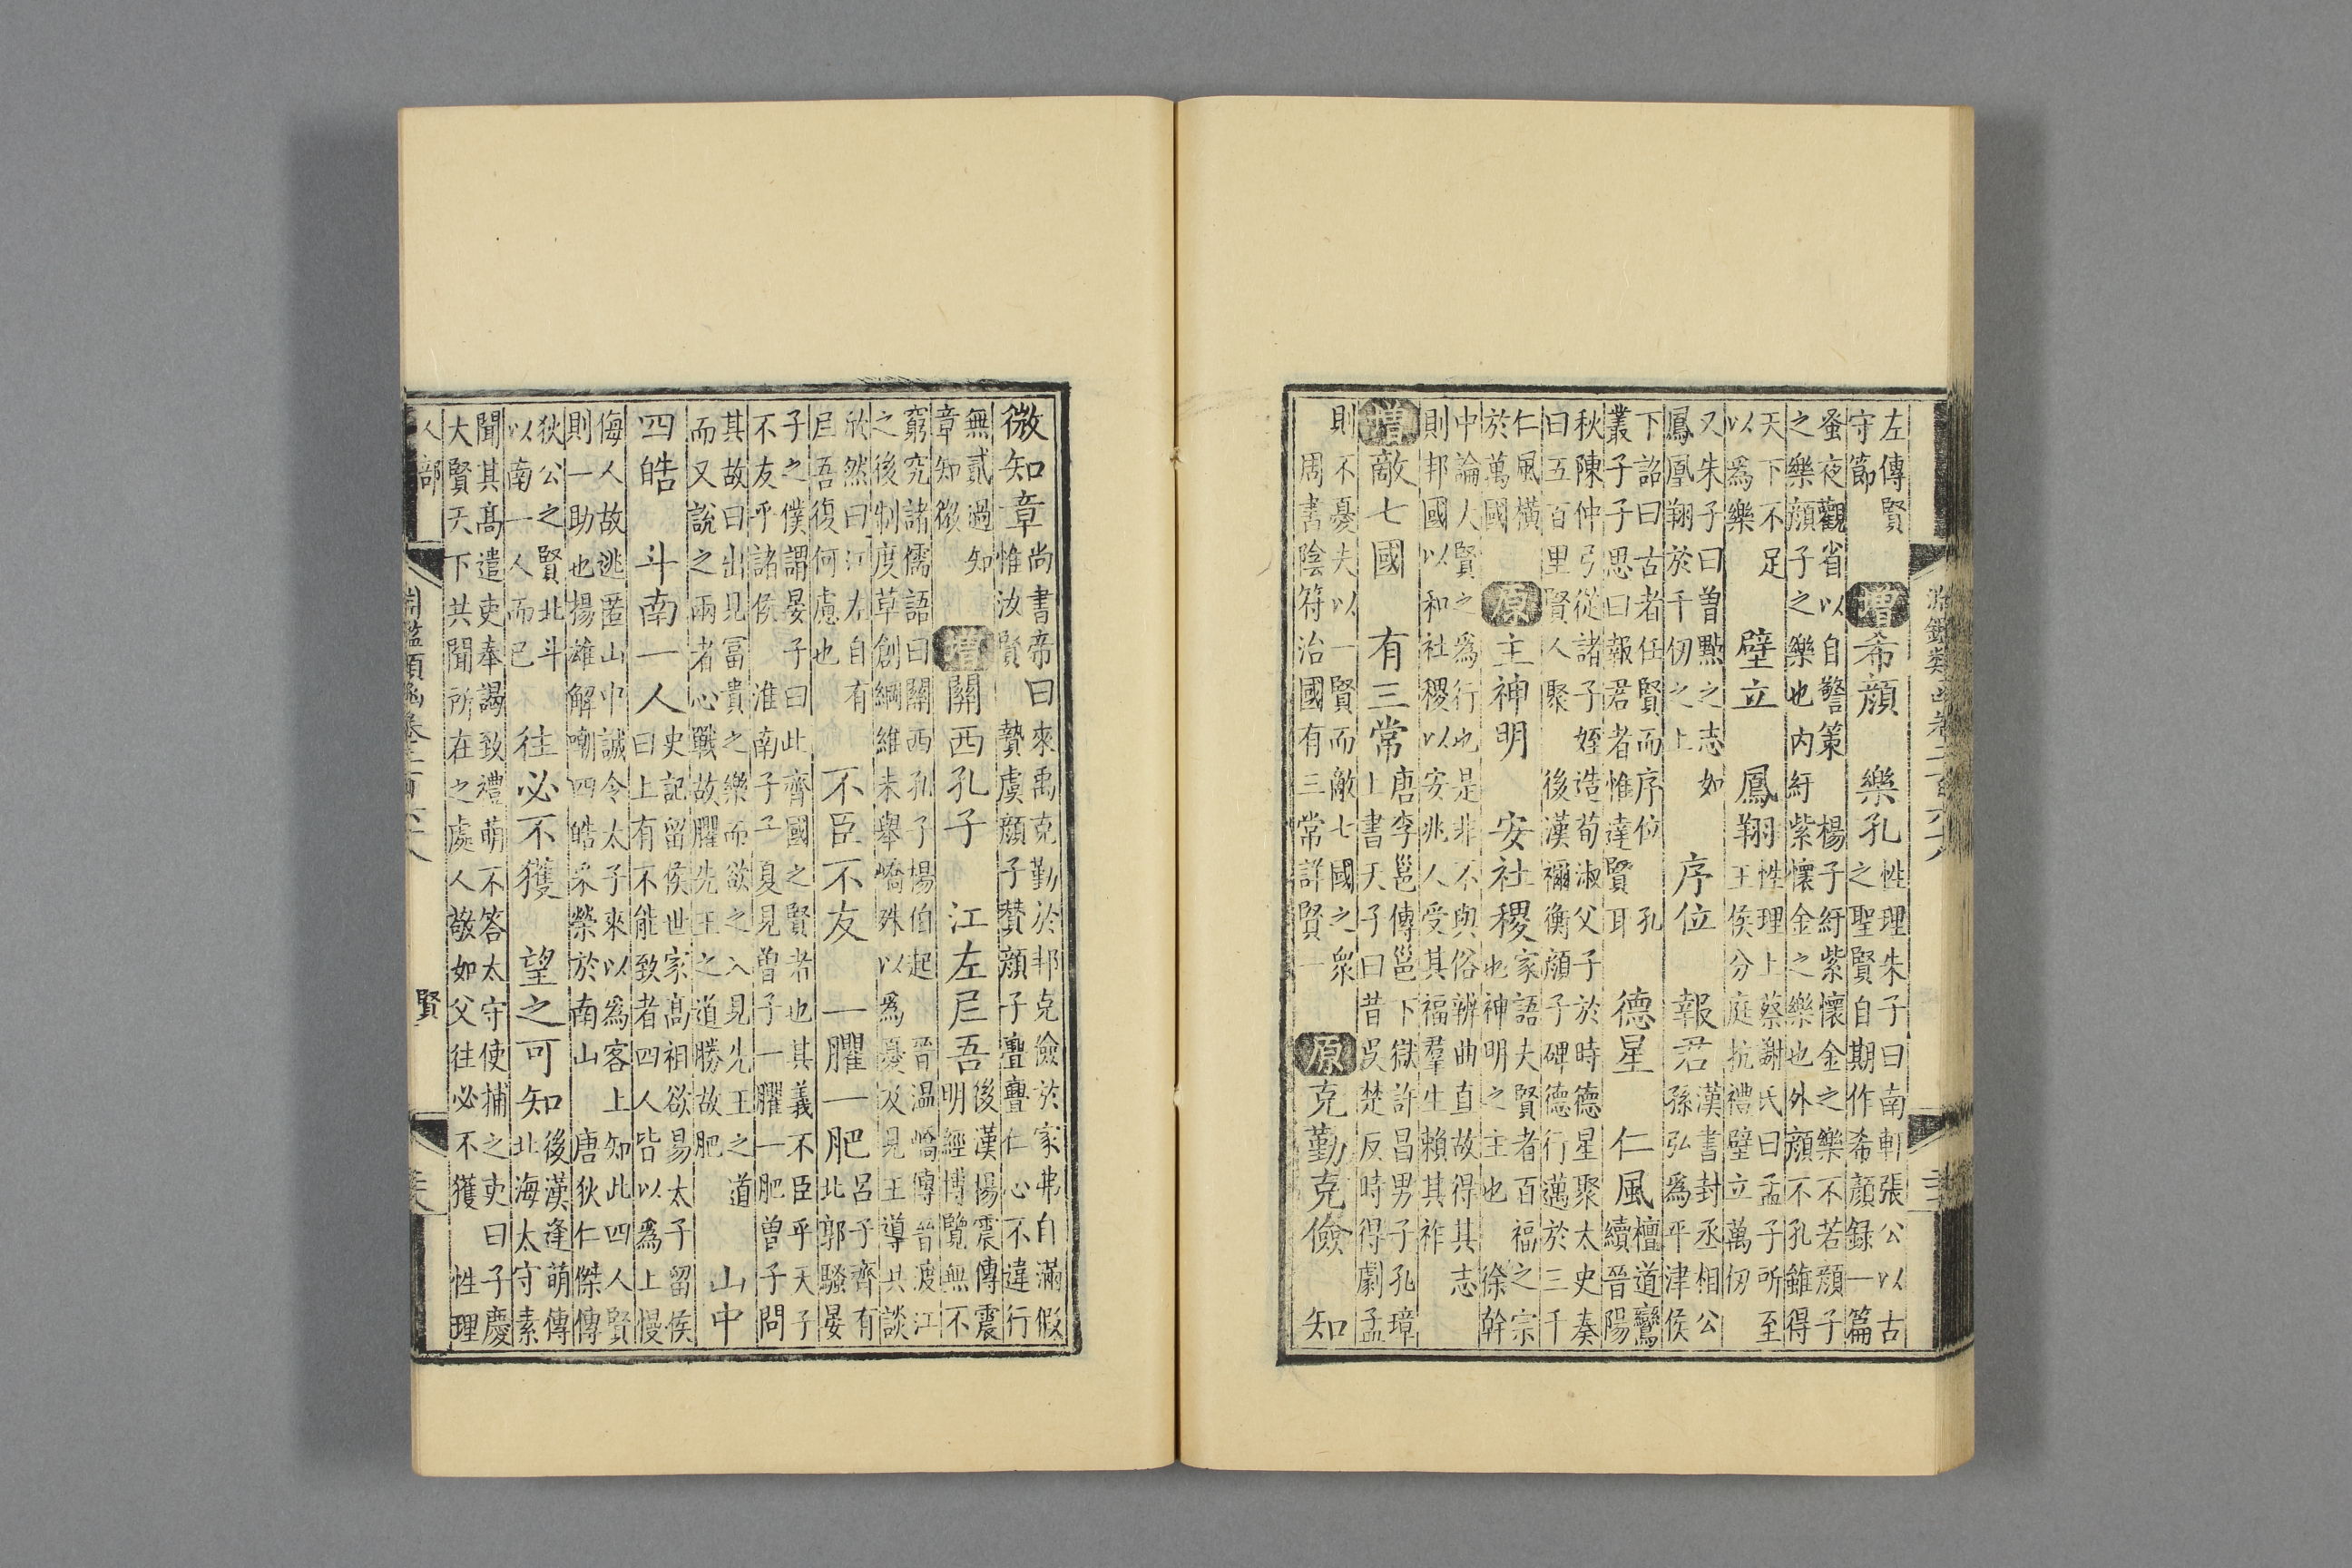 左傳賢
守節
增希顔 樂孔
性理朱子曰南軒張公以古
之聖賢自期作希顔録一篇
蚤夜觀省以自警策 楊子紆紫懷金之樂不若顔子
之樂顔子之樂也内紆紫懷金之樂也外顔不孔雖得
天下不足
以爲樂
壁立 鳳翔
性理上蔡謝氏曰孟子所至
王侯分庭抗禮壁立萬仞
又朱子曰曽點之志如
鳳凰翔於千仞之上
序位 報君
漢書封丞相公
孫弘爲平津侯
下詔曰古者任賢而序位 孔
叢子子思曰報君者惟達賢耳
德星 仁風
檀道鸞
續晉陽
秋陳仲弓從諸子姪造荀淑父子於時德星聚太史奏
曰五百里賢人聚 後漢禰衡顔子碑德行邁於三千
仁風橫
於萬國
原主神明 安社稷
家語夫賢者百福之宗
也神明之主也 徐幹
中論人賢之爲行也是非不與俗辨曲直故得其志
則邦國以和社稷以安兆人受其福羣生賴其祚
增敵七國 有三常
唐李邕傳邕下獄許昌男子孔璋
上書天子曰昔吳楚反時得劇孟
則不憂夫以一賢而敵七國之衆
周書陰符治國有三常詳賢一
原克勤克儉 知
淵鑑類函卷二百六十八
微知章
尚書帝曰來禹克勤於邦克儉於家弗自滿假
惟汝賢 贄虞顔子賛顔子亹亹仁心不違行
無貳過知
章知微
增關西孔子 江左𡰱吾
後漢楊震傳震
明經博覽無不
窮究諸儒語曰關西孔子楊伯起 晉温嶠傳晉渡江
之後制度草創綱維未舉嶠殊以爲憂及見王導共談
欣然曰江左自有
𡰱吾復何慮也
不臣不友 一臞一肥
呂子齊有
北郭騷晏
子之僕謂晏子曰此齊國之賢者也其義不臣乎天子
不友乎諸侯 淮南子子夏見曽子一臞一肥曽子問
其故曰出見冨貴之樂而欲之入見先王之道
而又說之兩者心戰故臞先王之道勝故肥
山中
四皓 斗南一人
史記留侯世家髙祖欲易太子留侯
曰上有不能致者四人皆以爲上慢
侮人故逃匿山中誠令太子來以爲客上知此四人賢
則一助也揚雄解嘲四皓采榮於南山 唐狄仁傑傳
狄公之賢北斗
以南一人而已
往必不獲 望之可知
後漢逢萌傳
北海太守素
聞其髙遣吏奉謁致禮萌不答太守使捕之吏曰子慶
大賢天下共聞所在之處人敬如父往必不獲 性理
人部 淵鑑類函卷二百六十八 賢